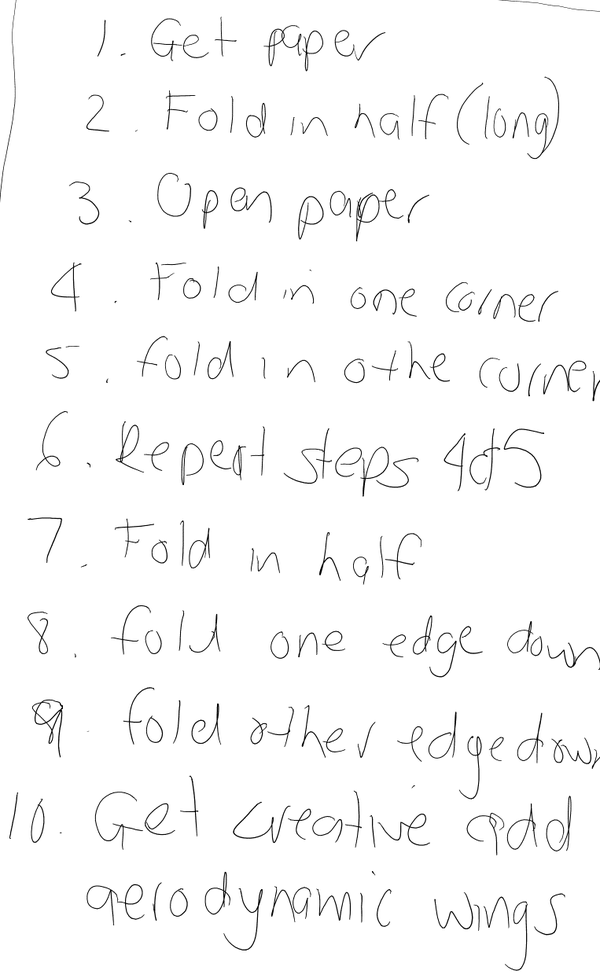 1. Get paper
2. Fold in half (long)
3. Open paper
4. Fold in one corner
5. fold in othe corner
6. Repeat steps 4&5
7. Fold in half
8. fold one edge down
9. fold other edge down
10. Get creative add
aerodynamic wings